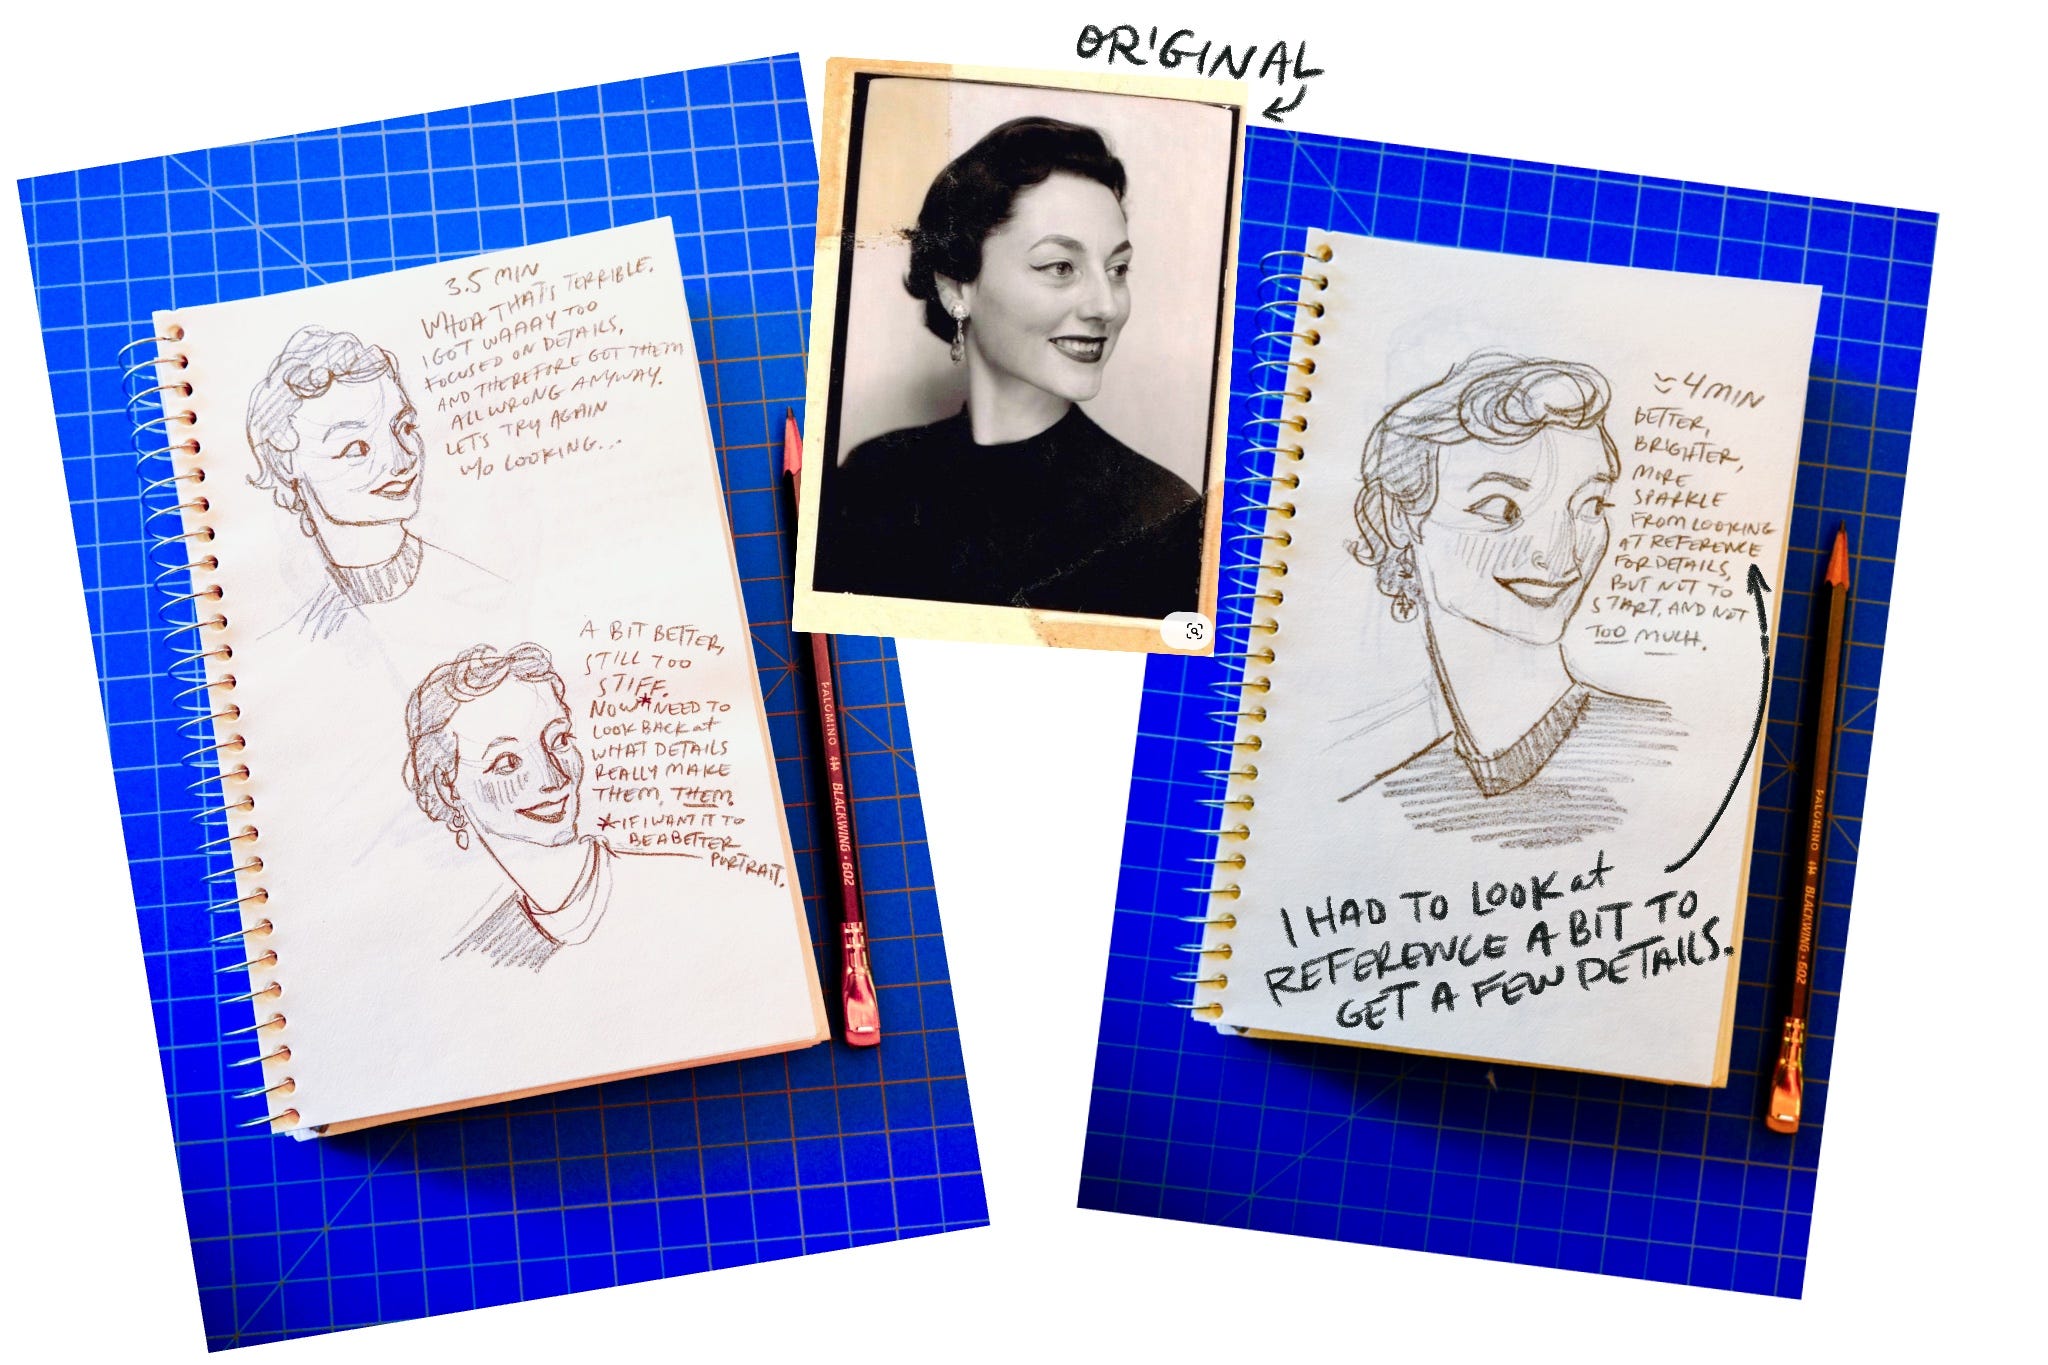 ORIGINAL
3.5 MIN
WHOA THAT'S TERRIBLE.
I GOT WAAAY TOO
FOCUSED ON DETAILS,
AND THEREFORE GOT THEM
ALL WRONG ANYWAY.
LET'S TRY AGAIN
W/O LOOKING...
A BIT BETTER,
STILL TOO
STIFF.
NOW* NEED TO
LOOK BACK at
WHAT DETAILS
REALLY MAKE
THEM, THEM.
*IF I WANT IT TO
BE A BETTER
PORTRAIT.
PALOMINO BLACKWING • 602
≈ 4 MIN
BETTER,
BRIGHTER,
MORE
SPARKLE
FROM LOOKING
AT REFERENCE
FOR DETAILS,
BUT NOT TO
START, AND NOT
TOO MUCH.
I HAD TO LOOK at
REFERENCE A BIT TO
GET A FEW DETAILS.
PALOMINO BLACKWING • 602